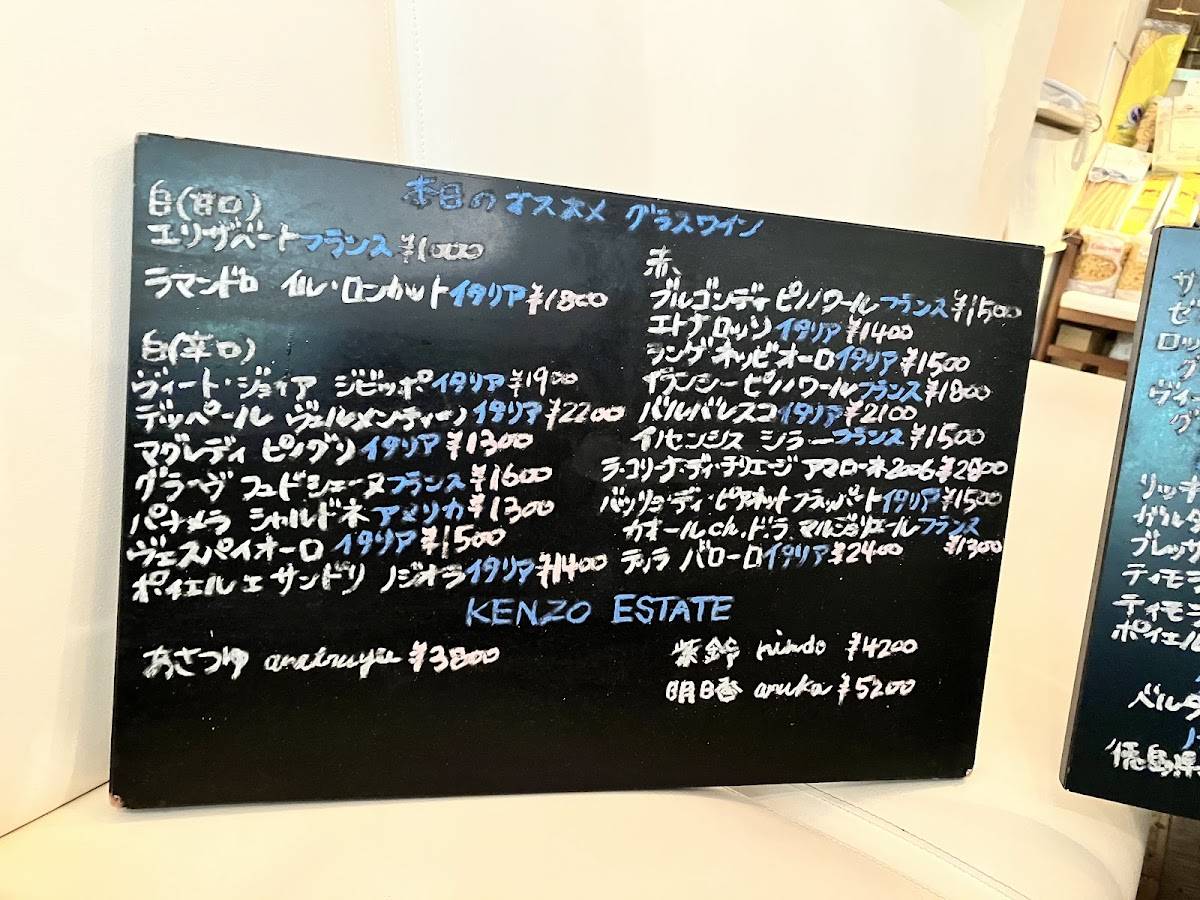 本日のオススメ グラスワイン
白(甘口)
エリザベートフランス ¥1000
ラマンドロ イル・ロンカットイタリア ¥1800
白(辛口)
ヴィート・ジョイア ジビッポイタリア ¥1900
デッペール ヴェルメンティーノイタリア ¥2200
マグレディ ピノグリ イタリア ¥1300
グラーヴ フュドシェーヌフランス ¥1600
パナメラ シャルドネアメリカ ¥1300
ヴェスパイオーロ イタリア ¥1500
ポイエル エ サンドリ ノジオライタリア ¥1400
赤、
ブルゴンディ ピノノワールフランス ¥1500
エトナロッソ イタリア ¥1400
ランゲ ネッビオーロイタリア ¥1500
イランシー ピノノワールフランス ¥1800
バルバレスコイタリア ¥2100
イルセンシス シラーフランス ¥1500
ラ・コリーナ・ディ・チリエージ アマローネ2006 ¥2800
バッリョ・ディ・ピアネット フラッパートイタリア ¥1500
カオール ch.ド.ラ マルジョリエールフランス ¥1300
テッラ バローロイタリア ¥2400
KENZO ESTATE
あさつゆ asatsuyu ¥3800
紫鈴 rindo ¥4200
明日香 asuka ¥5200
ロッ
ヴィー
リッキ
ガルダ
ブレッサ
ティモラ
ティモニ
ポイエル
ベルタ
徳島県